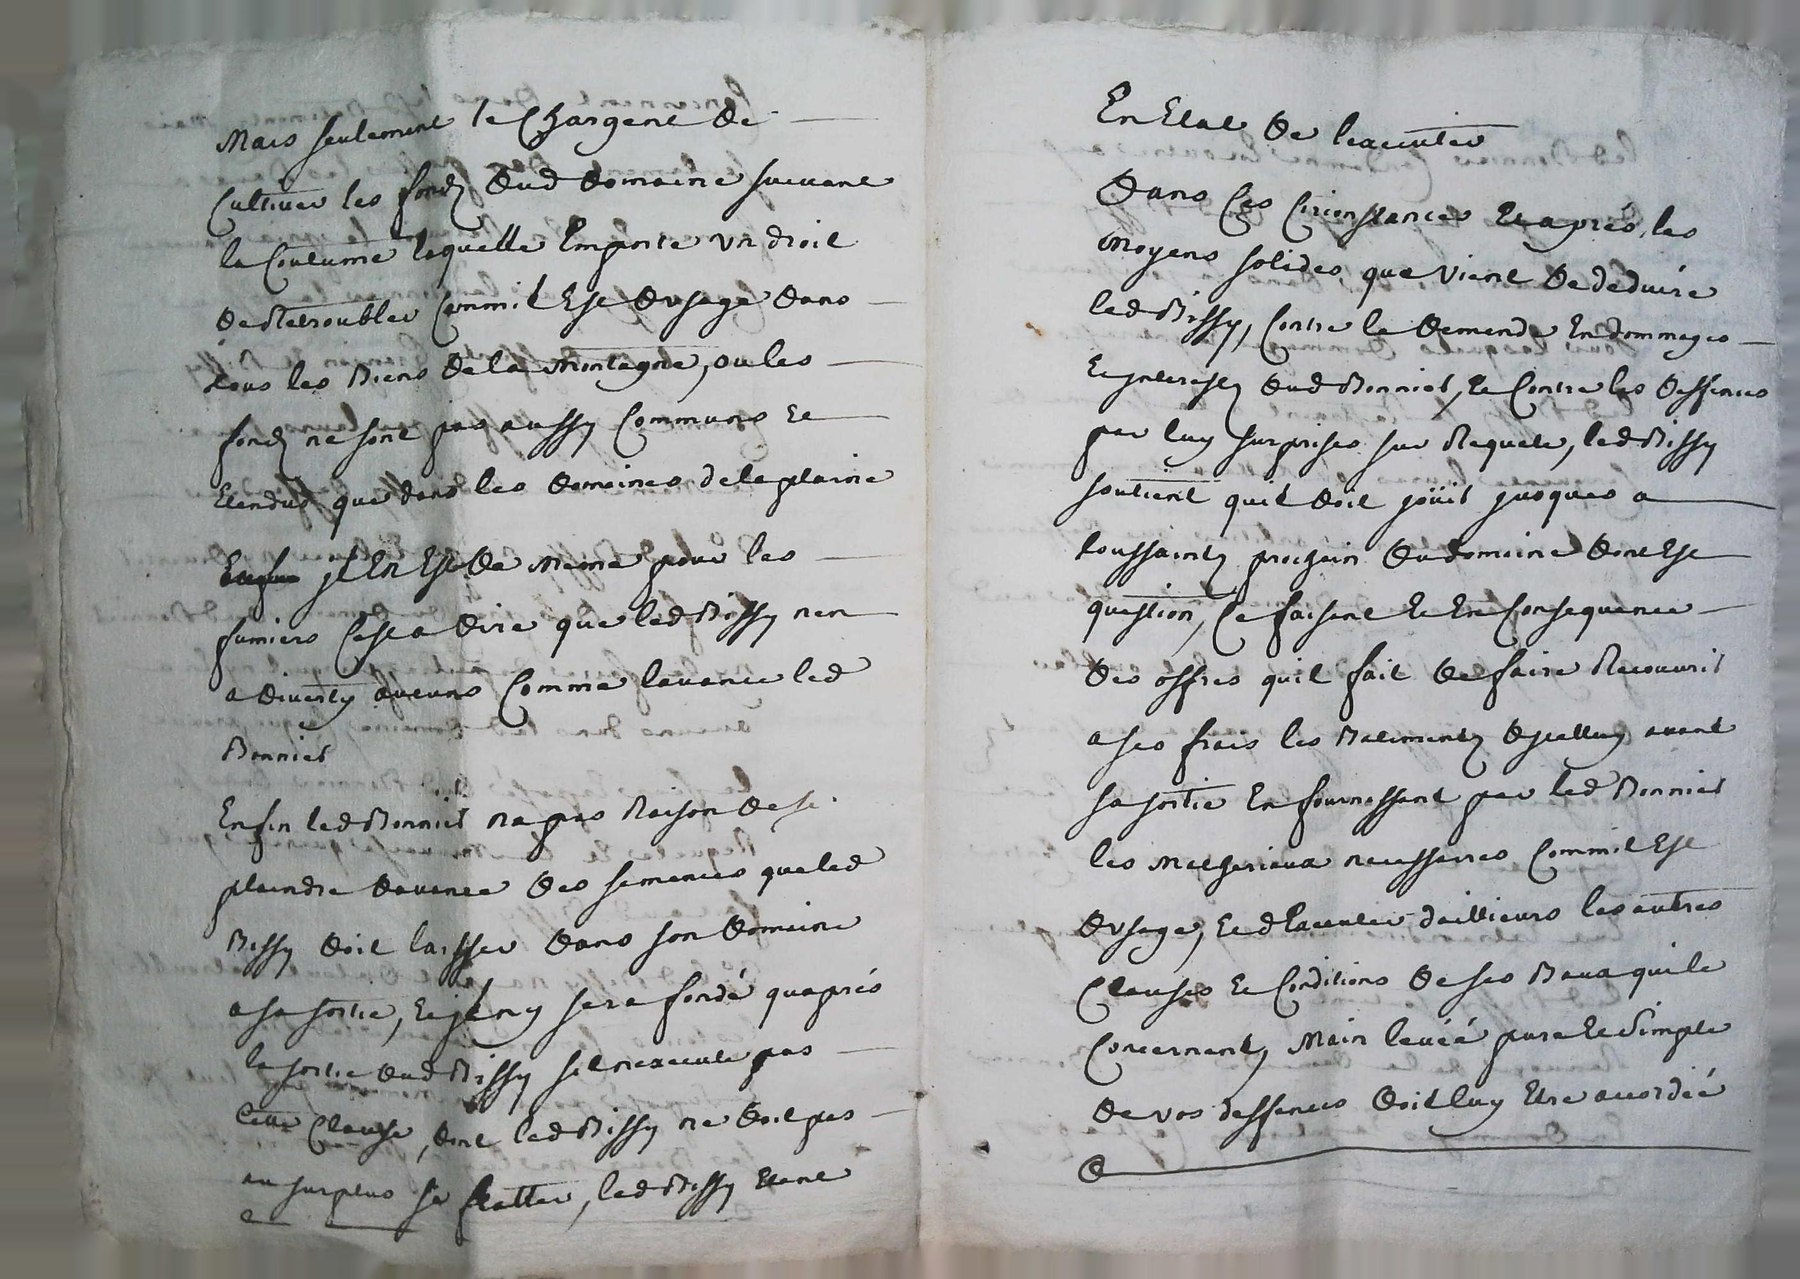 Mais seulement le Chargent de
Cultiver les fonds dud domaine suivant
la Coutume laquelle Emporte un droit
de Retroubler Commil Est dusage dans
tous les Biens de la Montagne, ou les
fonds ne sont pas aussy Communs et
Etendus que dans les domaines de la plaine
jl En Est de meme pour les
fumiers Cest a dire que led Bissy nen
a diverty aucuns Comme lavance led
Bonniet
Enfin led Bonniet na pas Raison de se
plaindre davance des semences que led
Bissy doit laisser dans son domaine
a sa sortie, Et jl ny sera fondé quaprés
la sortie dud Bissy sil nexecute pas
Cette Clause, dont led Bissy ne doit pas
au surplus se flatter, led Bissy Etant
En Etat de lexecuter
Dans Ces Circonstances Et aprés les
moyens solides que vient de deduire
led Bissy, Contre la demande En dommages
Et jnterests dud Bonniet, Et Contre les deffences
par luy surprises sur Requete, led Bissy
soutient quil doit joüit jusques a
toussaints prochain du domaine dont Est
question, Ce faisant Et En Consequence
des offres quil fait de faire Recouvrit
a ses frais les Batiments djcelluy avant
sa sortie En fournissant par led Bonniet
les matheriaux necessaires Commil Est
dusage, Et dExecuter dailleurs les autres
Clauses Et Conditions de ses Baux qui le
Concernent, Main levéé pure Et Simple
de vos deffences doit luy Etre accordéé